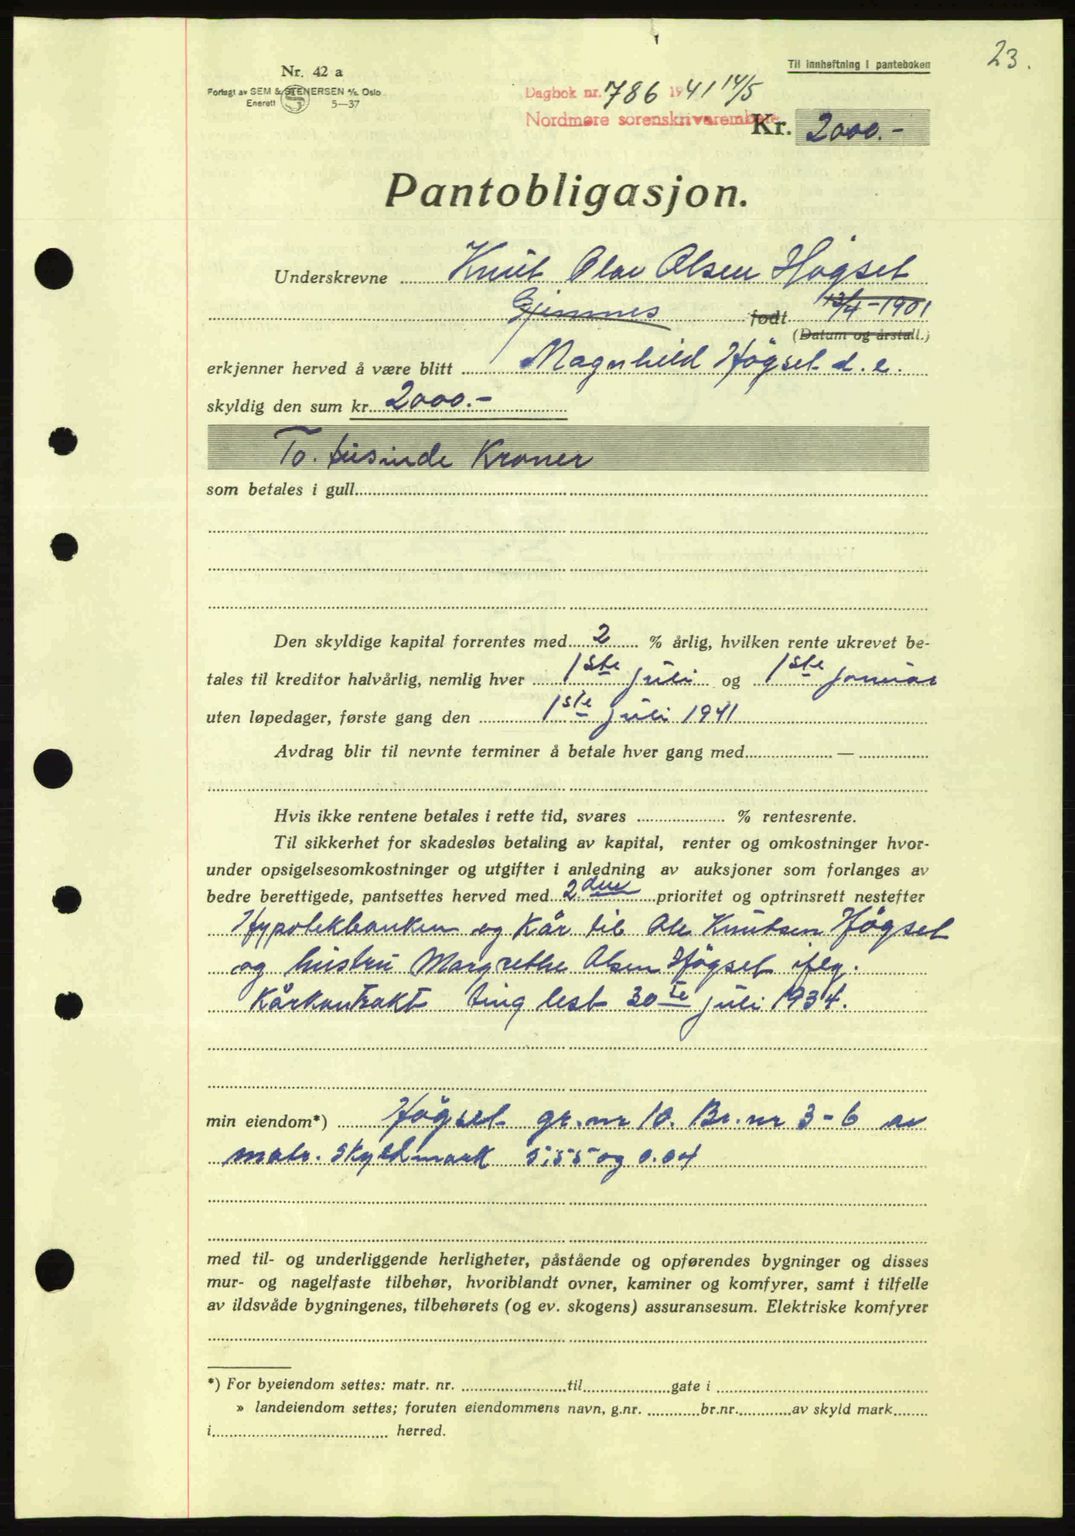 23.
Til innheftning i panteboken
Nr. 42 a
Forlagt av SEM & STENERSEN A/S, Oslo
Enerett 5—37
Dagbok nr. 786 1941 14/5
Nordmøre sorenskriverembete
Kr. 2000.-
Pantobligasjon.
Underskrevne Knut Olav Olsen Høgset
Gjemnes født 12/4-1901
(Datum og årstall.)
erkjenner herved å være blitt Magnhild Høgset d. e.
skyldig den sum kr. 2000.-
To. tusinde Kroner
som betales i gull
Den skyldige kapital forrentes med 2 % årlig, hvilken rente ukrevet be-
tales til kreditor halvårlig, nemlig hver 1ste juli og 1ste januar
uten løpedager, første gang den 1ste juli 1941
Avdrag blir til nevnte terminer å betale hver gang med —
Hvis ikke rentene betales i rette tid, svares % rentesrente.
Til sikkerhet for skadesløs betaling av kapital, renter og omkostninger hvor-
under opsigelsesomkostninger og utgifter i anledning av auksjoner som forlanges av
bedre berettigede, pantsettes herved med 2den prioritet og optrinsrett nestefter
Hypotekbanken og Kår til Ole Knutsen Høgset
og hustru Margrethe Olsen Høgset iflg.
Kårkontrakt ting lest 30te juli 1934.
min eiendom*) Høgset gr.nr 10. Br.nr 3-6 av
matr. Skyldmark 5,55 og 0.04
med til- og underliggende herligheter, påstående og opførendes bygninger og disses
mur- og nagelfaste tilbehør, hvoriblandt ovner, kaminer og komfyrer, samt i tilfelle
av ildsvåde bygningenes, tilbehørets (og ev. skogens) assuransesum. Elektriske komfyrer
*) For byeiendom settes: matr. nr. til gate i
» landeiendom settes; foruten eiendommens navn, g.nr. br.nr. av skyld mark
i herred.